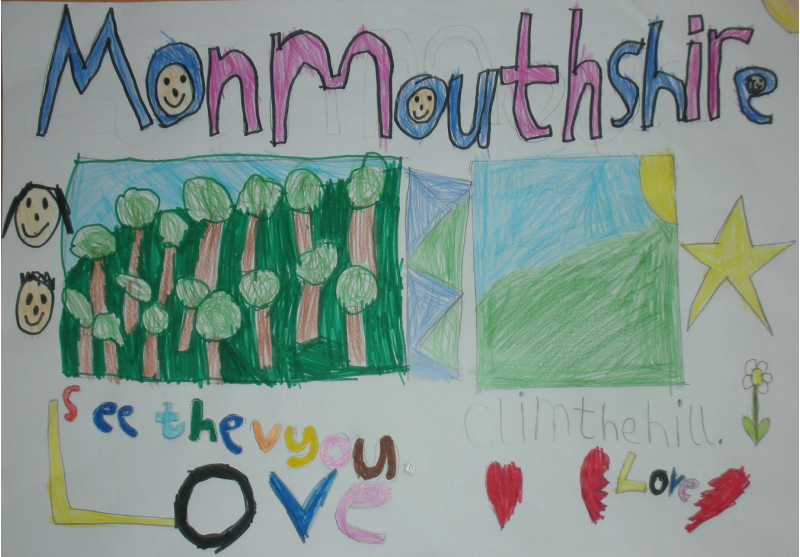 Monmouthshire
See the vyou.
climthehill.
LOVE
Love